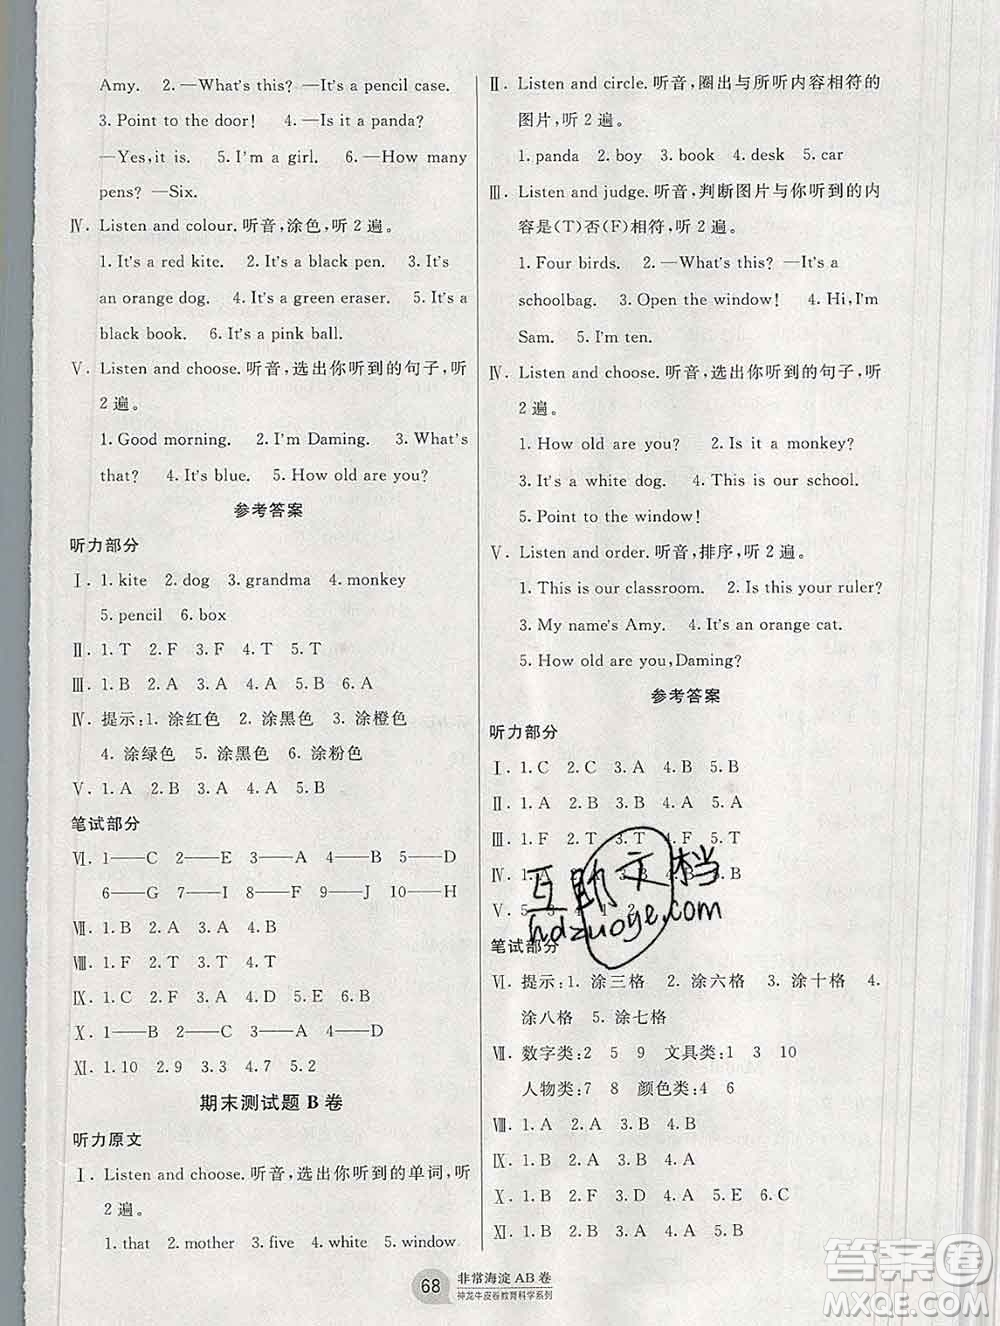 Amy.　2.—What's this? —It's a pencil case.
3. Point to the door!　4.—Is it a panda?
—Yes, it is.　5. I'm a girl.　6.—How many
pens? —Six.
Ⅳ. Listen and colour. 听音,涂色,听2遍。
1. It's a red kite.　2. It's a black pen.　3. It's
an orange dog.　4. It's a green eraser.　5. It's a
black book.　6. It's a pink ball.
Ⅴ. Listen and choose. 听音,选出你听到的句子,听
2遍。
1. Good morning.　2. I'm Daming.　3. What's
that?　4. It's blue.　5. How old are you?
参考答案
听力部分
Ⅰ. 1. kite　2. dog　3. grandma　4. monkey
5. pencil　6. box
Ⅱ. 1. T　2. F　3. F　4. T　5. F
Ⅲ. 1. B　2. A　3. A　4. A　5. B　6. A
Ⅳ. 提示:1. 涂红色　2. 涂黑色　3. 涂橙色
4. 涂绿色　5. 涂黑色　6. 涂粉色
Ⅴ. 1. A　2. B　3. B　4. A　5. B
笔试部分
Ⅵ. 1——C　2——E　3——A　4——B　5——D
6——G　7——I　8——F　9——J　10——H
Ⅶ. 1. B　2. A　3. B　4. A　5. B
Ⅷ. 1. T　2. F　3. F　4. T
Ⅸ. 1. A　2. A　3. B　4. B　5. B
Ⅹ. 1——B　2——C　3——A　4——D
Ⅺ. 1. 10　2. 9　3. 3　4. 7　5. 2
期末测试题 B 卷
听力原文
Ⅰ. Listen and choose. 听音,选出你听到的单词,听
2遍。
1. that　2. mother　3. five　4. white　5. window
Ⅱ. Listen and circle. 听音,圈出与所听内容相符的
图片,听2遍。
1. panda　2. boy　3. book　4. desk　5. car
Ⅲ. Listen and judge. 听音,判断图片与你听到的内
容是(T)否(F)相符,听2遍。
1. Four birds.　2.—What's this? —It's a
schoolbag.　3. Open the window!　4. Hi, I'm
Sam.　5. I'm ten.
Ⅳ. Listen and choose. 听音,选出你听到的句子,听
2遍。
1. How old are you?　2. Is it a monkey?
3. It's a white dog.　4. This is our school.
5. Point to the window!
Ⅴ. Listen and order. 听音,排序,听2遍。
1. This is our classroom.　2. Is this your ruler?
3. My name's Amy.　4. It's an orange cat.
5. How old are you, Daming?
参考答案
听力部分
Ⅰ. 1. C　2. C　3. A　4. B　5. B
Ⅱ. 1. A　2. B　3. B　4. B　5. A
Ⅲ. 1. F　2. T　3. T　4. F　5. T
Ⅳ. 1. A　4. B　5. B
Ⅴ. 5
笔试部分
Ⅵ. 提示:1. 涂三格　2. 涂六格　3. 涂十格　4.
涂八格　5. 涂七格
Ⅶ. 数字类:2　5　9　文具类:1　3　10
人物类:7　8　颜色类:4　6
Ⅷ. 1. B　2. A　3. A　4. B　5. A
Ⅸ. 1. B　2. A　3. A　4. B
Ⅹ. 1. B　2. B　3. A　4. A　5. B　6. C
Ⅺ. 1. B　2. A　3. A　4. B　5. B
互助文档
hdzuoye.com
68　非常海淀 AB 卷
神龙牛皮卷教育科学系列
答案圈
MXQE.COM